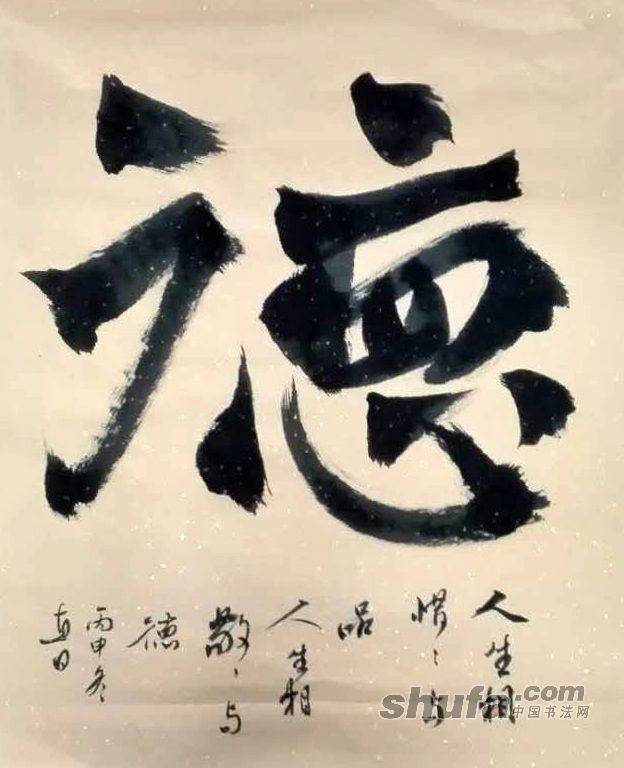 德
人生相
惜〻与
品
人生相
敬〻与
德
丙申冬
日
shufa.com
中国书法网